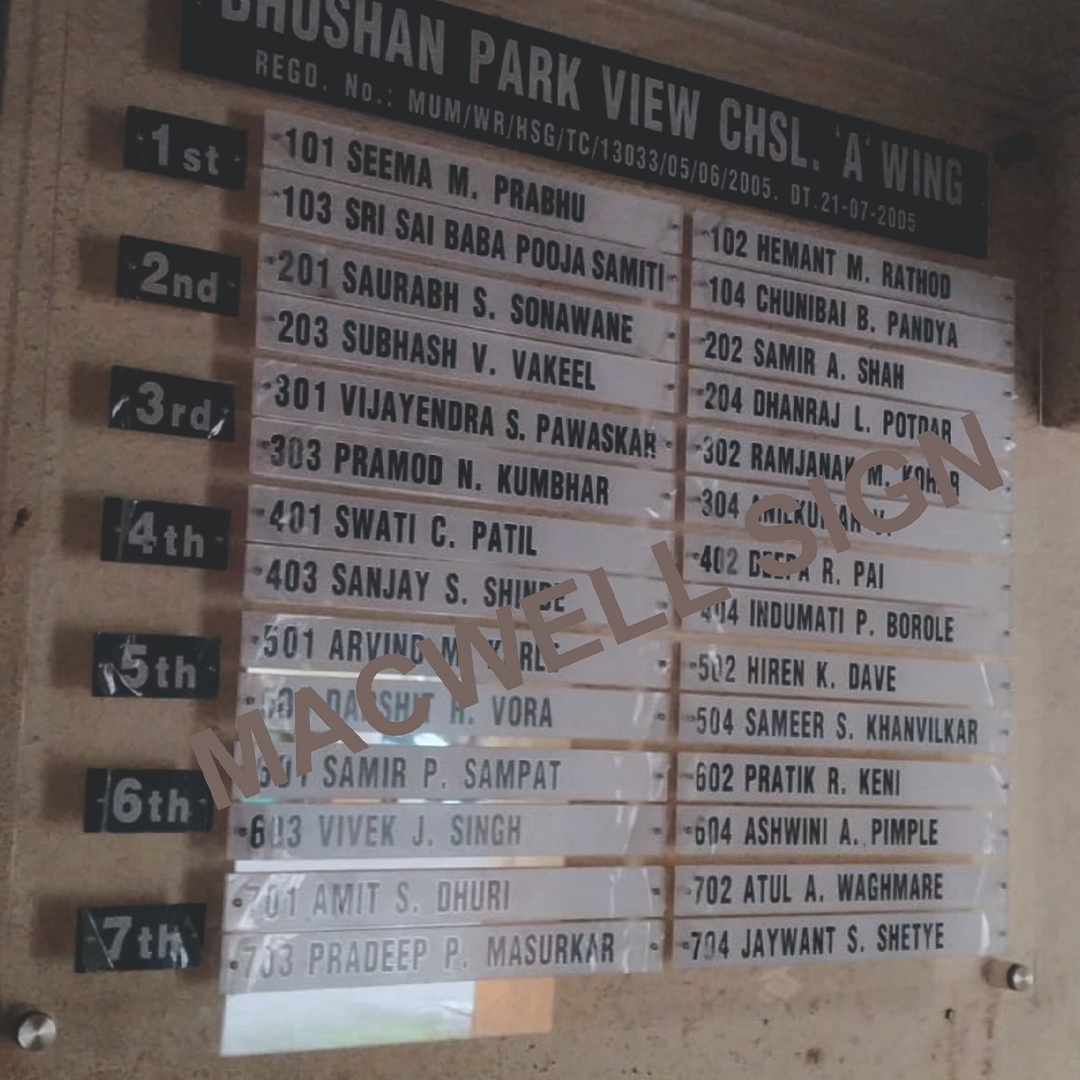 BHUSHAN PARK VIEW CHSL. 'A' WING
REGD. No.: MUM/WR/HSG/TC/13033/05/06/2005. DT.21-07-2005
1st
101 SEEMA M. PRABHU
102 HEMANT M. RATHOD
103 SRI SAI BABA POOJA SAMITI
104 CHUNIBAI B. PANDYA
2nd
201 SAURABH S. SONAWANE
202 SAMIR A. SHAH
203 SUBHASH V. VAKEEL
204 DHANRAJ L. POTDAR
3rd
301 VIJAYENDRA S. PAWASKAR
302 RAMJANAK M.
303 PRAMOD N. KUMBHAR
304 ANILKUMAR V.
4th
401 SWATI C. PATIL
402 DEEPA R. PAI
403 SANJAY S. SHINDE
404 INDUMATI P. BOROLE
5th
501 ARVIND M.
502 HIREN K. DAVE
H. VORA
504 SAMEER S. KHANVILKAR
6th
601 SAMIR P. SAMPAT
602 PRATIK R. KENI
603 VIVEK J. SINGH
604 ASHWINI A. PIMPLE
7th
701 AMIT S. DHURI
702 ATUL A. WAGHMARE
703 PRADEEP P. MASURKAR
704 JAYWANT S. SHETYE
MACWELL SIGN